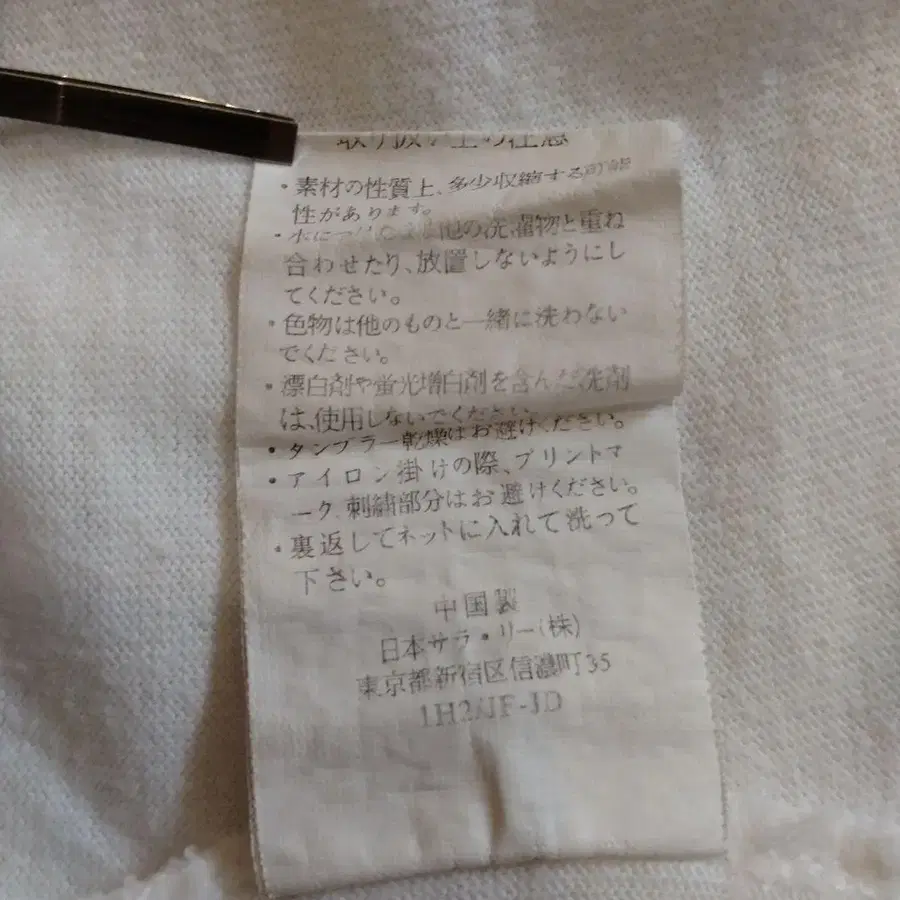 取り扱い上の注意
・素材の性質上、多少収縮する可能
性があります。
の洗濯物と重ね
合わせたり、放置しないようにし
てください。
・色物は他のものと一緒に洗わない
でください。
・漂白剤や蛍光増白剤を含んだ洗剤
は、使用しないでください。
・タンブラー乾燥はお避けください。
・アイロン掛けの際、プリントマ
ーク、刺繍部分はお避けください。
・裏返してネットに入れて洗って
下さい。
中国製
日本サラ・リー(株)
東京都新宿区信濃町35